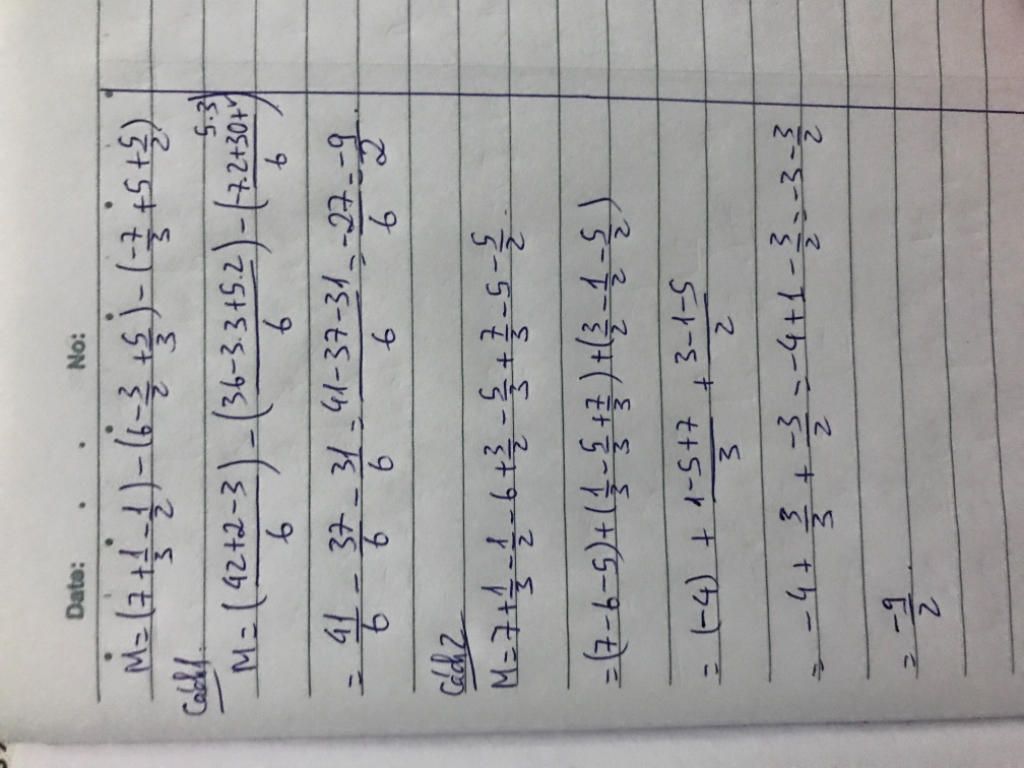 Date: . . No:
M = (7 + 1/3 - 1/2) - (6 - 3/2 + 5/3) - (-7/3 + 5 + 5/2)
Cách1.
M = (42+2-3)/6 - (36-3.3+5.2)/6 - (-7.2+30+5.3)/6
= 41/6 - 37/6 - 31/6 = (41-37-31)/6 = -27/6 = -9/2.
Cách2
M = 7 + 1/3 - 1/2 - 6 + 3/2 - 5/3 + 7/3 - 5 - 5/2.
= (7-6-5) + (1/3 - 5/3 + 7/3) + (3/2 - 1/2 - 5/2)
= (-4) + (1-5+7)/3 + (3-1-5)/2
= -4 + 3/3 + -3/2 = -4+1 - 3/2 = -3 - 3/2
= -9/2.